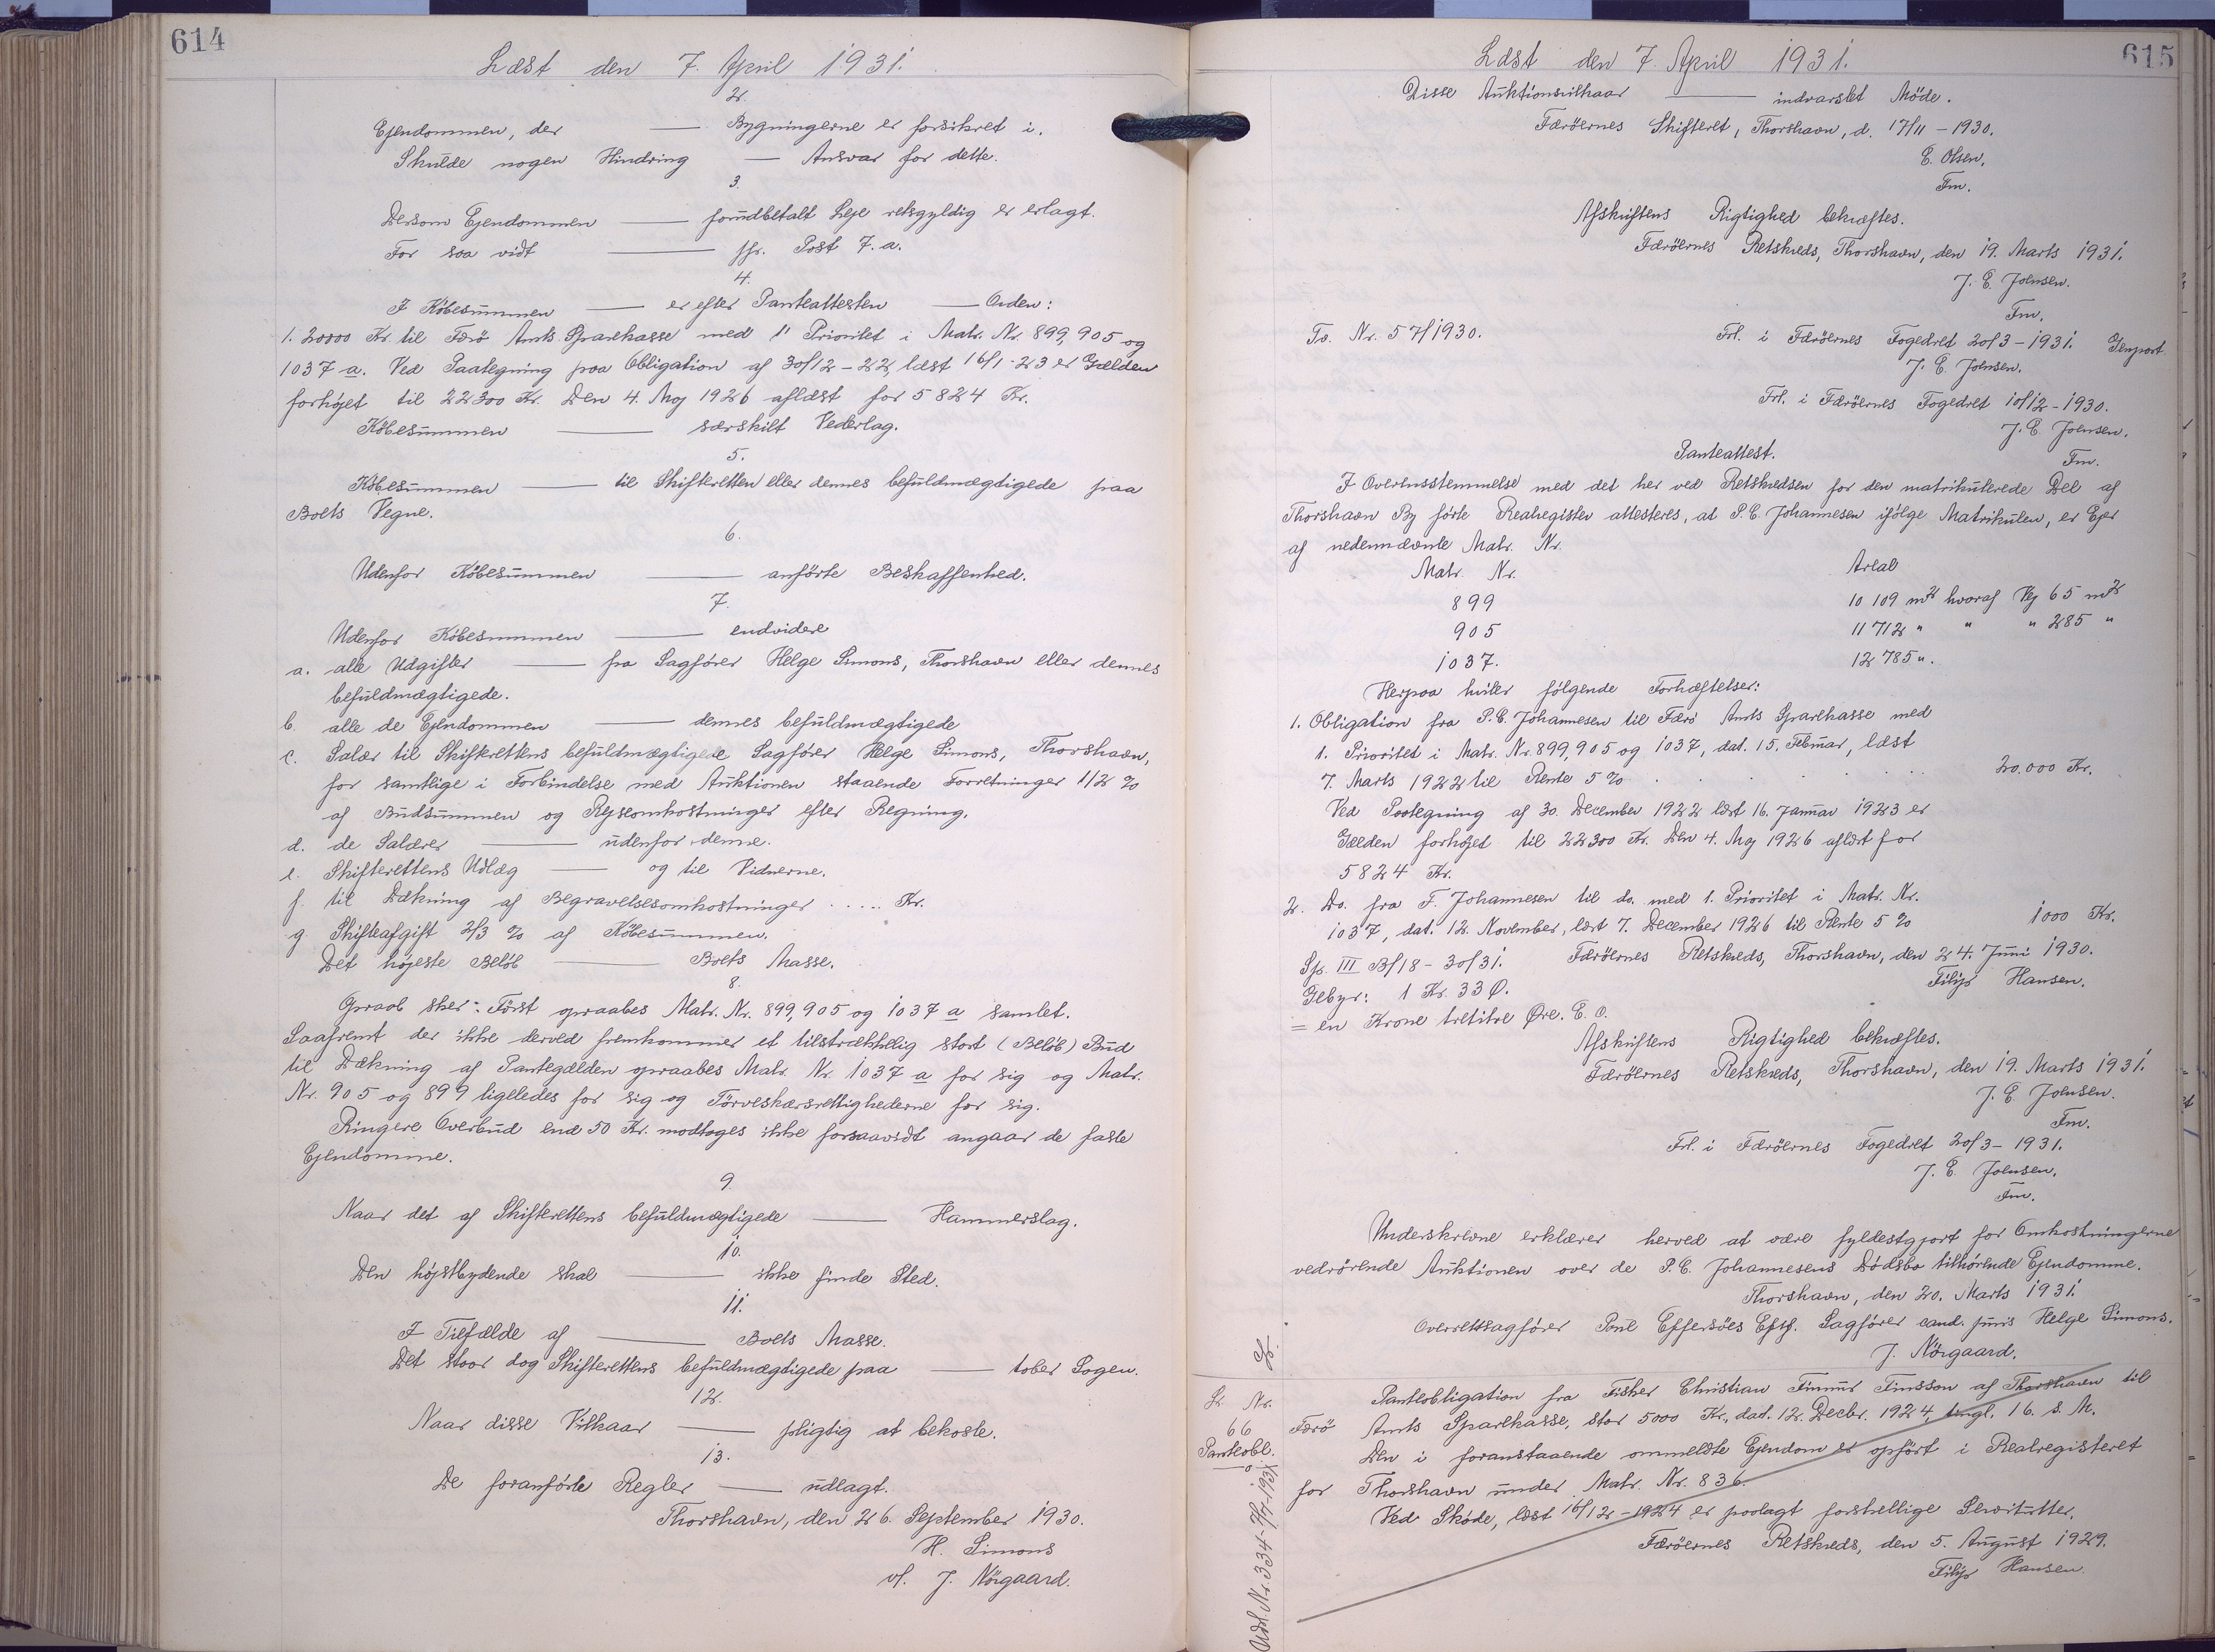 614
Læst den 7. April 1931.
2.
Ejendommen, der — Bygningerne er forsikret i.
Skulde nogen Hindring — Ansvar for dette.
3.
Dersom Ejendommen — forudbetalt Leje retsgyldig er erlagt.
For saa vidt — jfr. Post 7. a.
4.
I Købesummen — er efter Panteattesten — Orden:
1. 20000 Kr. til Færø Amts Sparekasse med 1' Prioritet i Matr. Nr. 899, 905 og
1037 a. Ved Paategning paa Obligation af 30/12 - 22, læst 16/1 - 23 er Gælden
forhøjet til 22300 Kr. Den 4. Maj 1926 aflæst for 5824 Kr.
Købesummen — særskilt Vederlag.
5.
Købesummen — til Skifteretten eller dennes befuldmægtigede paa
Boets Vegne.
6.
Udenfor Købesummen — anførte Beskaffenhed.
7.
Udenfor Købesummen — endvidere
a. alle Udgifter — fra Sagfører Helge Simons, Thorshavn eller dennes
befuldmægtigede.
b. alle de Ejendommen — dennes befuldmægtigede
c. Salær til Skifterettens befuldmægtigede Sagfører Helge Simons, Thorshavn,
for samtlige i Forbindelse med Auktionen staaende Forretninger 1/2 %
af Budsummen og Rejseomkostninger efter Regning.
d. de Salærer — udenfor denne.
e. Skifterettens Udlæg — og til Vidnerne.
f. til Dækning af Begravelsesomkostninger ..... Kr.
g. Skifteafgift 2/3 % af Købesummen.
Det højeste Beløb — Boets Masse.
8.
Opraab sker: Først opraabes Matr. Nr. 899, 905 og 1037 a samlet.
Saafremt der ikke derved fremkommer et tilstrækkelig stort (Beløb) Bud
til Dækning af Pantegælden opraabes Matr. Nr. 1037 a for sig og Matr.
Nr. 905 og 899 ligeledes for sig og Tørveskærsrettighederne for sig.
Ringere Overbud end 50 Kr. modtages ikke forsaavidt angaar de faste
Ejendomme.
9.
Naar det af Skifterettens befuldmægtigede — Hammerslag.
10.
Den højstbydende skal — ikke finde Sted.
11.
I Tilfælde af — Boets Masse.
Det staar dog Skifterettens befuldmægtigede paa — tober Sogen.
12.
Naar disse Vilkaar — pligtig at bekoste.
13.
De foranførte Regler — udlagt.
Thorshavn, den 26. September 1930.
H. Simons
v/. J. Nörgaard.
615
Læst den 7. April 1931.
Disse Auktionsvilkaar — indvarslet Møde.
Færöernes Skifteret, Thorshavn, d. 17/11 - 1930.
E. Olsen,
Fm.
Afskriftens Rigtighed bekræftes.
Færöernes Retskreds, Thorshavn, den 19. Marts 1931.
J. E. Joensen.
Fm.
Tv. Nr. 57/1930. Frl. i Færöernes Fogedret 20/3 - 1931. Genpart
J. E. Joensen.
Frl. i Færöernes Fogedret 10/12 - 1930.
J. E. Joensen.
Fm.
Panteattest.
I Overensstemmelse med det her ved Retskredsen for den matrikulerede Del af
Thorshavn By førte Realregister attesteres, at P. C. Johannesen ifølge Matrikulen, er Ejer
af nedennævnte Matr. Nr.
Matr. Nr. Areal
899 10 109 m2 hvoraf Vej 65 m2
905 11 712 " " " 285 "
1037. 12 785 ".
Herpaa hviler følgende Forhæftelser:
1. Obligation fra P. C. Johannesen til Færø Amts Sparekasse med
1. Prioritet i Matr. Nr. 899, 905 og 1037, dat. 15. Februar, læst
7. Marts 1922 til Rente 5 % . . . . . . 20.000 Kr.
Ved Paategning af 30. December 1922 læst 16. Januar 1923 er
Gælden forhøjet til 22300 Kr. Den 4. Maj 1926 aflæst for
5824 Kr.
2. Do. fra F. Johannesen til do. med 1. Prioritet i Matr. Nr.
1037, dat. 12. November, læst 7. December 1926 til Rente 5 % 1000 Kr.
Sp. III B/18 - 30/31. Færöernes Retskreds, Thorshavn, den 24. Juni 1930.
Gebyr: 1 Kr. 33 Ø. Filip Hansen.
= en Krone tretitre Øre. E. O.
Afskriftens Rigtighed bekræftes.
Færöernes Retskreds, Thorshavn, den 19. Marts 1931.
J. E. Joensen.
Fm.
Frl. i Færöernes Fogedret 20/3 - 1931.
J. E. Joensen.
Fm.
Underskrevne erklærer herved at være fyldestgjort for Omkostningerne
vedrörende Auktionen over de P. C. Johannesens Dødsbo tilhørende Ejendomme.
Thorshavn, den 20. Marts 1931.
Overretssagfører Poul Effersöes Eftf. Sagfører cand. juris Helge Simons.
J. Nörgaard.
Nr.
66
Panteobl.
Udsl. Nr. 334
Panteobligation fra Fisker Christian Finnur Finsson af Thorshavn til
Færø Amts Sparekasse, stor 5000 Kr., dat. 12. Decbr. 1924, tingl. 16. s. M.
Den i foranstaaende ommeldte Ejendom er opført i Realregisteret
for Thorshavn under Matr. Nr. 836.
Ved Skøde, læst 16/12 - 1924 er paalagt forskellige Servitutter.
Færöernes Retskreds, den 5. August 1929.
Filip Hansen.